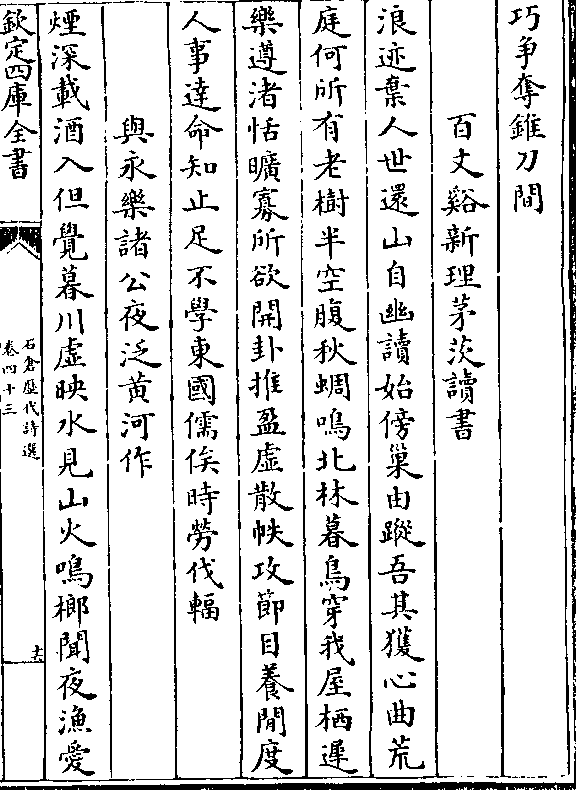 巧争奪錐刀間
百丈谿新理茅茨讀書
浪迹棄人世還山自幽讀始傍巢由蹤吾其獲心曲荒
庭何所有老樹半空腹秋蜩鳴北林暮鳥穿我屋栖遲
樂遵渚恬曠寡所欲開卦推盈虛散帙攻節目養閒度
人事達命知止足不學東國儒俟時勞伐輻
與永樂諸公夜泛黄河作
煙深載酒入但覺暮川虛映水見山火鳴榔聞夜漁愛
欽定四庫全書
石倉歴代詩選
卷四十三
十六